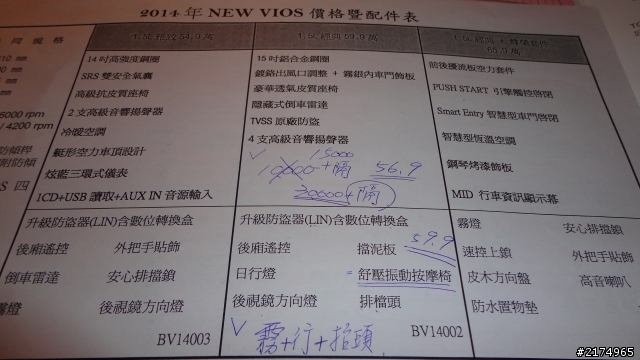 2014 年 NEW VIOS 價格暨配件表
14 吋高強度鋼圈
SRS 雙安全氣囊
高級抗皮質座椅
2 支高級音響揚聲器
冷暖空調
艇形空力車頂設計
炫藍三環式儀表
1CD+USB 讀取+AUX IN 音源輸入
15 吋鋁合金鋼圈
鍍鉻出風口調整 + 霧銀內車門飾板
豪華透氣皮質座椅
隱藏式倒車雷達
TVSS 原廠防盜
4 支高級音響揚聲器
15000
+隔 56.9
前後擾流板空力套件
PUSH START 引擎觸控啓閉
Smart Entry 智慧型車門啓閉
智慧型恆溫空調
鋼琴烤漆飾板
MID 行車資訊顯示幕
6000 rpm
/ 4200 rpm
升級防盜器(LIN)含數位轉換盒
後廂遙控 外把手貼飾
倒車雷達 安心排擋鎖
後視鏡方向燈
BV14003
升級防盜器(LIN)含數位轉換盒
後廂遙控 擋泥板 59.9
日行燈 舒壓振動按摩椅
後視鏡方向燈 排檔頭
BV14002
霧+行+抬頭
霧燈 安心排擋鎖
速控上鎖 外把手貼飾
皮木方向盤 高音喇叭
防水置物墊
#2174965